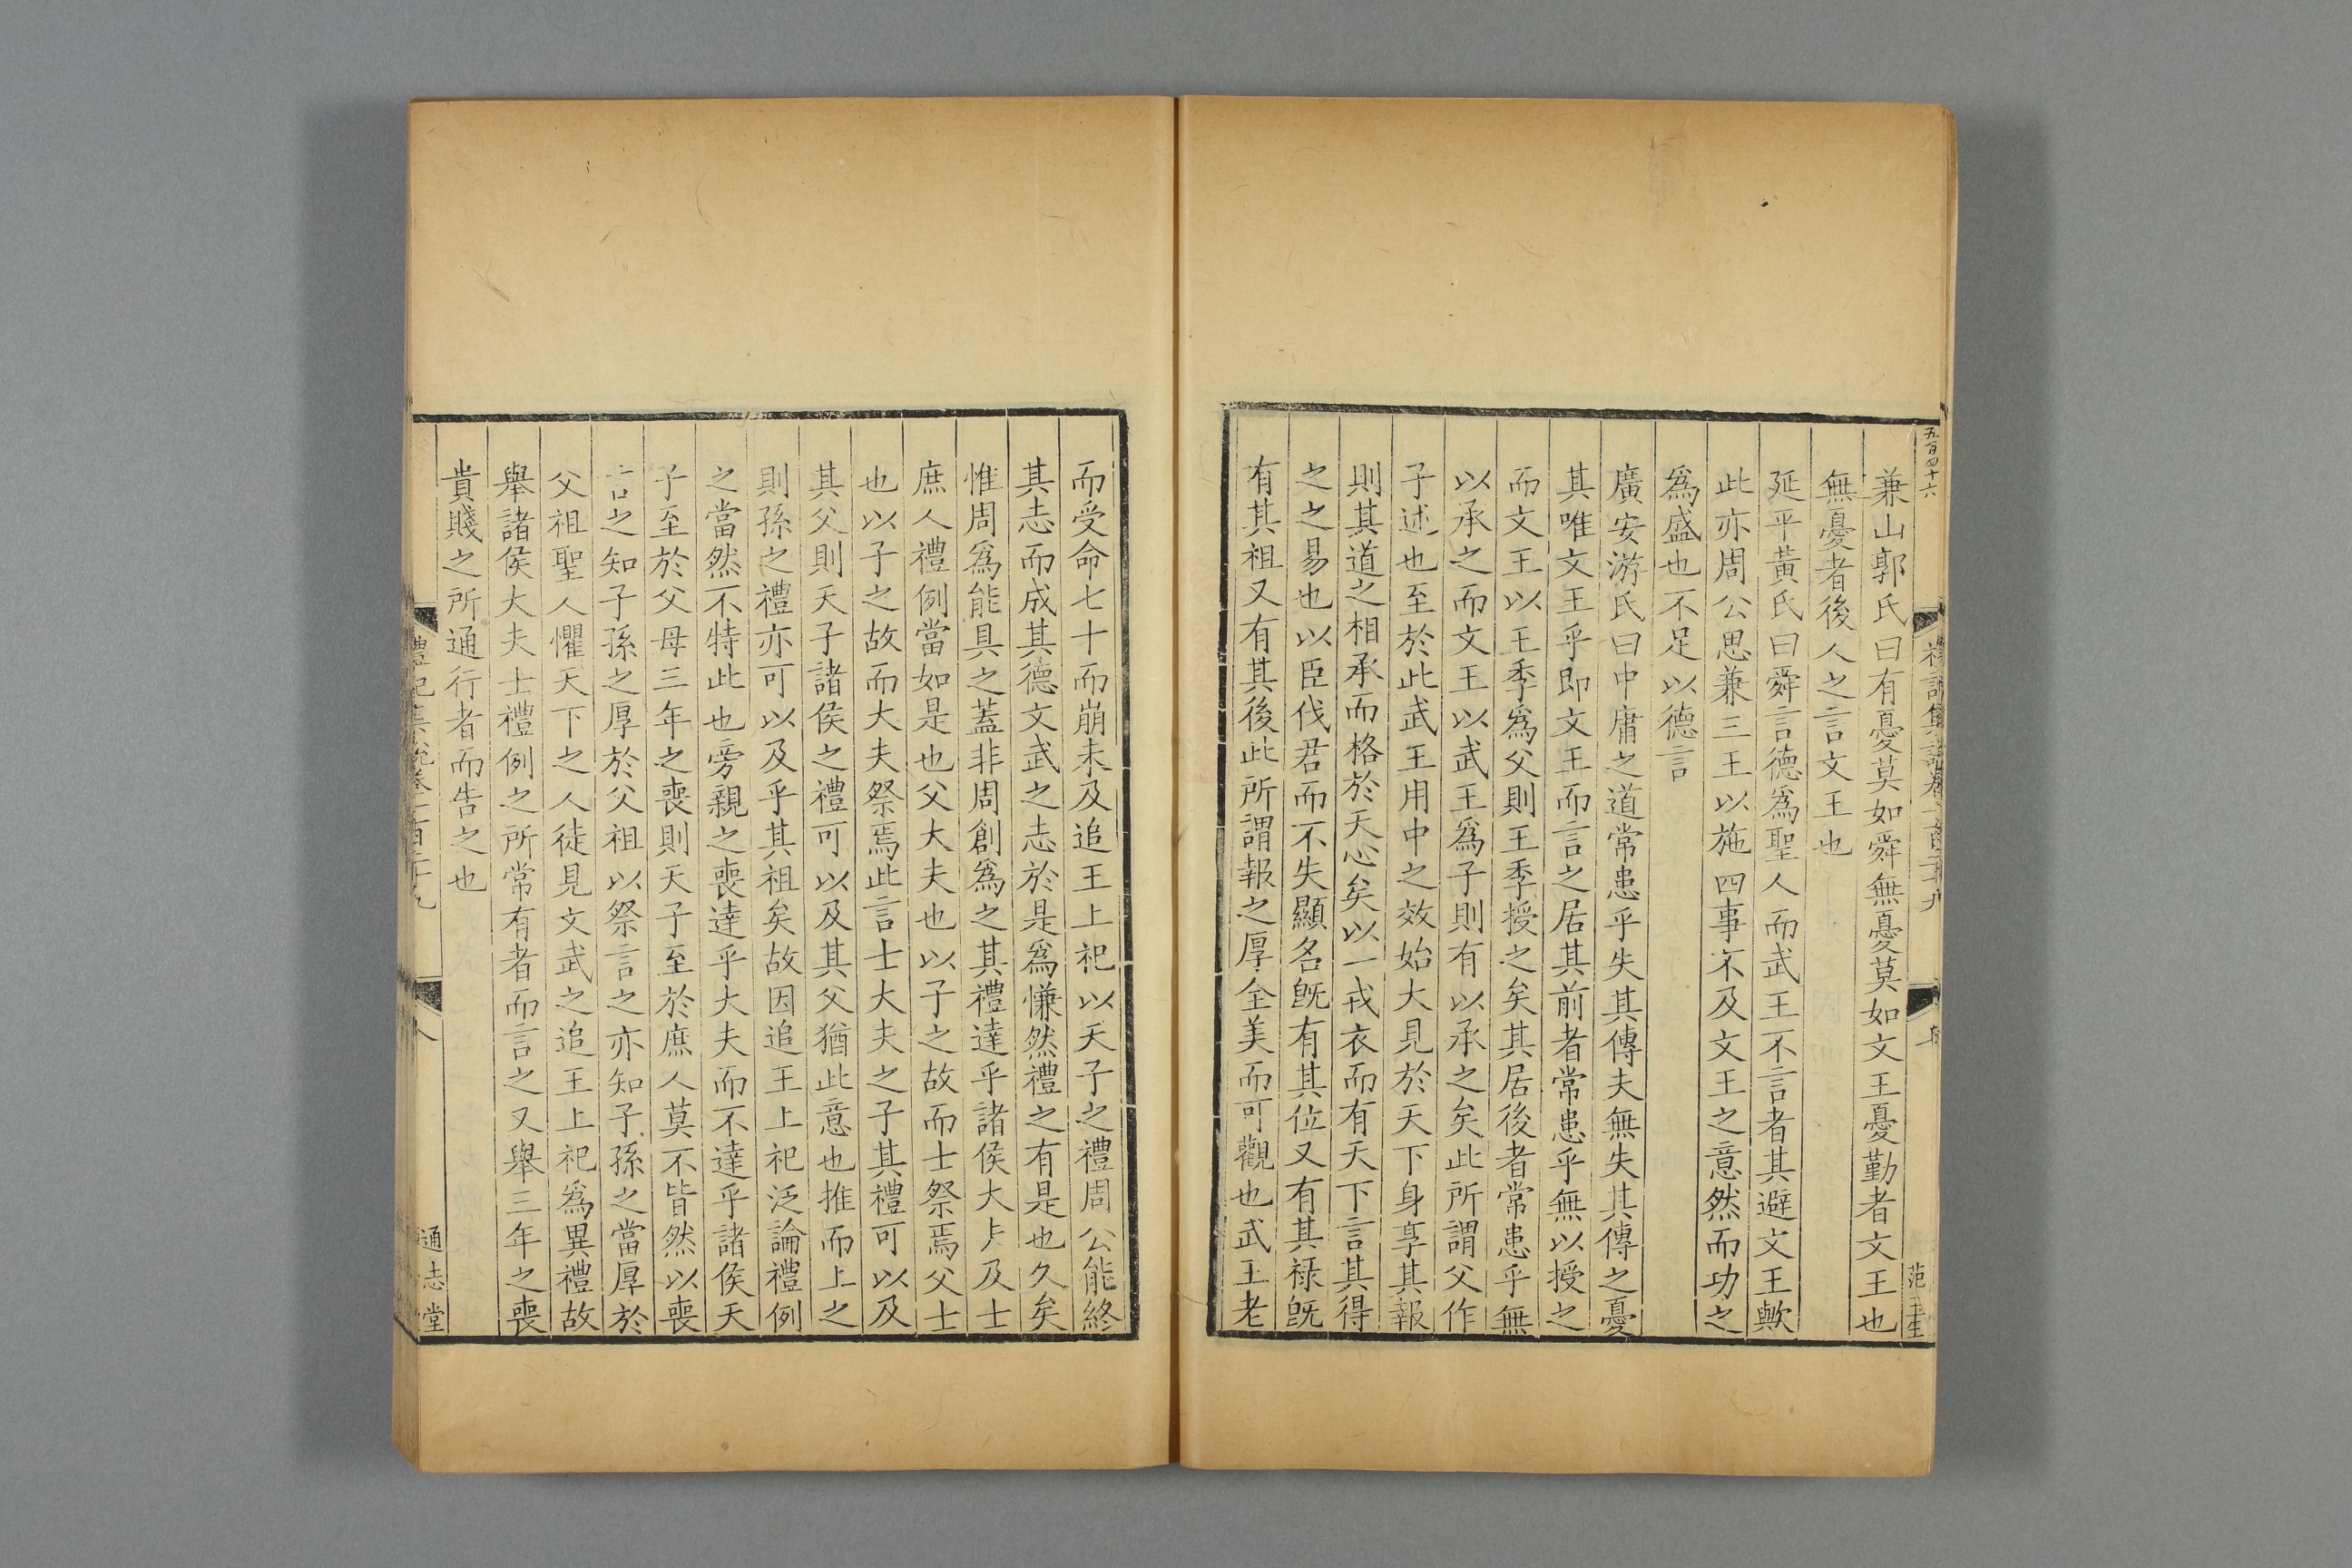 五百四十六
兼山郭氏曰有憂莫如舜無憂莫如文王憂勤者文王也
無憂者後人之言文王也
延平黃氏曰舜言德爲聖人而武王不言者其避文王歟
此亦周公思兼三王以施四事不及文王之意然而功之
爲盛也不足以德言
廣安游氏曰中庸之道常患乎失其傳夫無失其傳之憂
其唯文王乎即文王而言之居其前者常患乎無以授之
而文王以王季爲父則王季授之矣其居後者常患乎無
以承之而文王以武王爲子則有以承之矣此所謂父作
子述也至於此武王用中之效始大見於天下身享其報
則其道之相承而格於天心矣以一戎衣而有天下言其得
之之易也以臣伐君而不失顯名旣有其位又有其祿旣
有其祖又有其後此所謂報之厚全美而可觀也武王老
而受命七十而崩未及追王上祀以天子之禮周公能終
其志而成其德文武之志於是爲慊然禮之有是也久矣
惟周爲能具之蓋非周創爲之其禮達乎諸侯大夫及士
庶人禮例當如是也父大夫也以子之故而士祭焉父士
也以子之故而大夫祭焉此言士大夫之子其禮可以及
其父則天子諸侯之禮可以及其父猶此意也推而上之
則孫之禮亦可以及乎其祖矣故因追王上祀泛論禮例
之當然不特此也旁親之喪達乎大夫而不達乎諸侯天
子至於父母三年之喪則天子至於庶人莫不皆然以喪
言之知子孫之厚於父祖以祭言之亦知子孫之當厚於
父祖聖人懼天下之人徒見文武之追王上祀爲異禮故
舉諸侯大夫士禮例之所常有者而言之又舉三年之喪
貴賤之所通行者而告之也
禮記集說卷一百二十九
通志堂